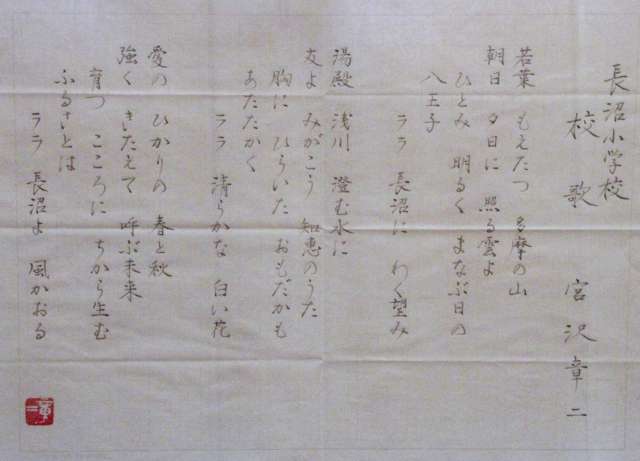 長沼小学校
校歌 宮沢章二
若葉 もえたつ 多摩の山
朝日 夕日に 照る雲よ
ひとみ 明るく まなぶ日の
八王子
ララ 長沼に わく望み
湯殿 浅川 澄む水に
友よ みがこう 知恵のうた
胸に ひらいた おもだかも
あたたかく
ララ 清らかな 白い花
愛の ひかりの 春と秋
強く きたえて 呼ぶ未来
育つ こころに ちから生む
ふるさとは
ララ 長沼よ 風かおる